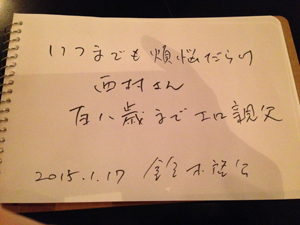 いつまでも煩悩だらけ
西村さん
百八歳までエロ親父
2015.1.17 鈴木